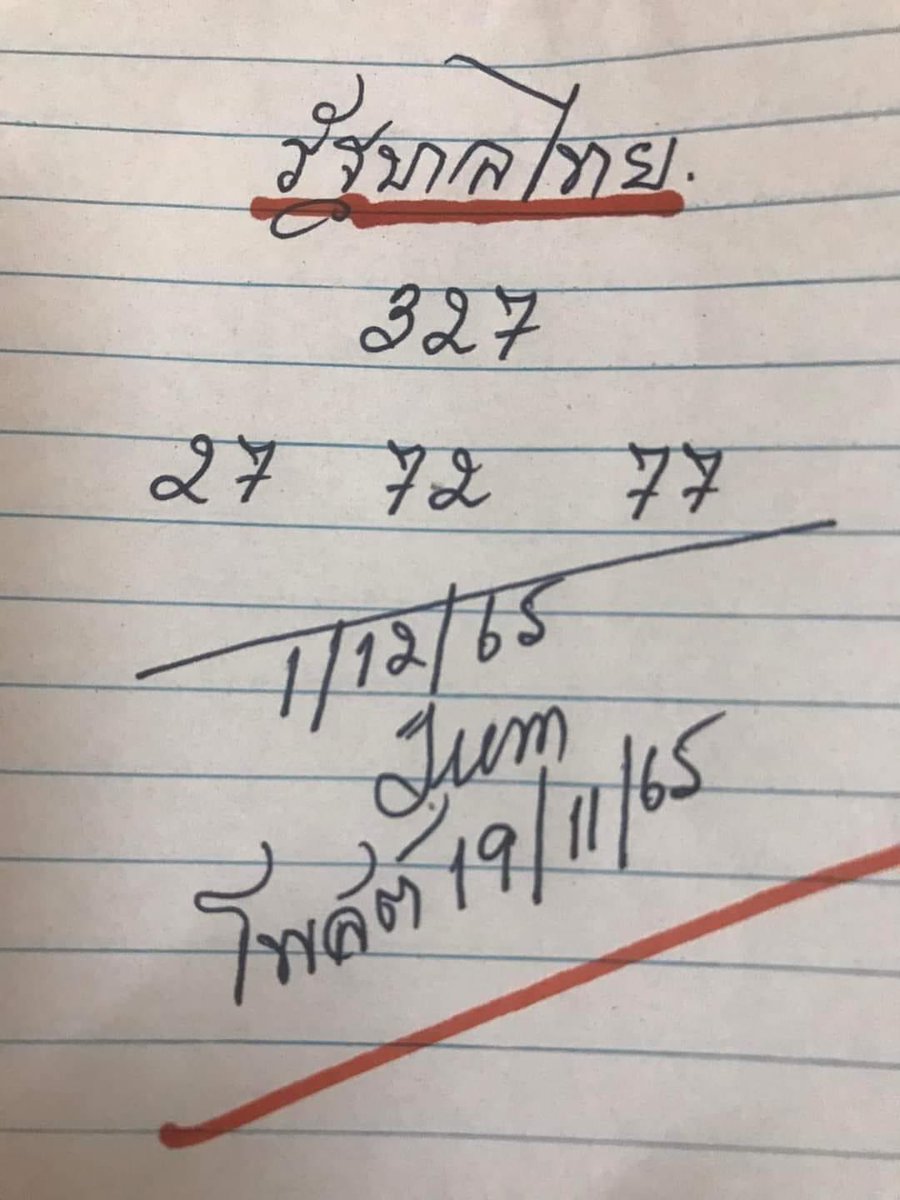 รัฐบาลไทย.
327
27 72 77
1/12/65
Jum
โพสต์ 19/11/65